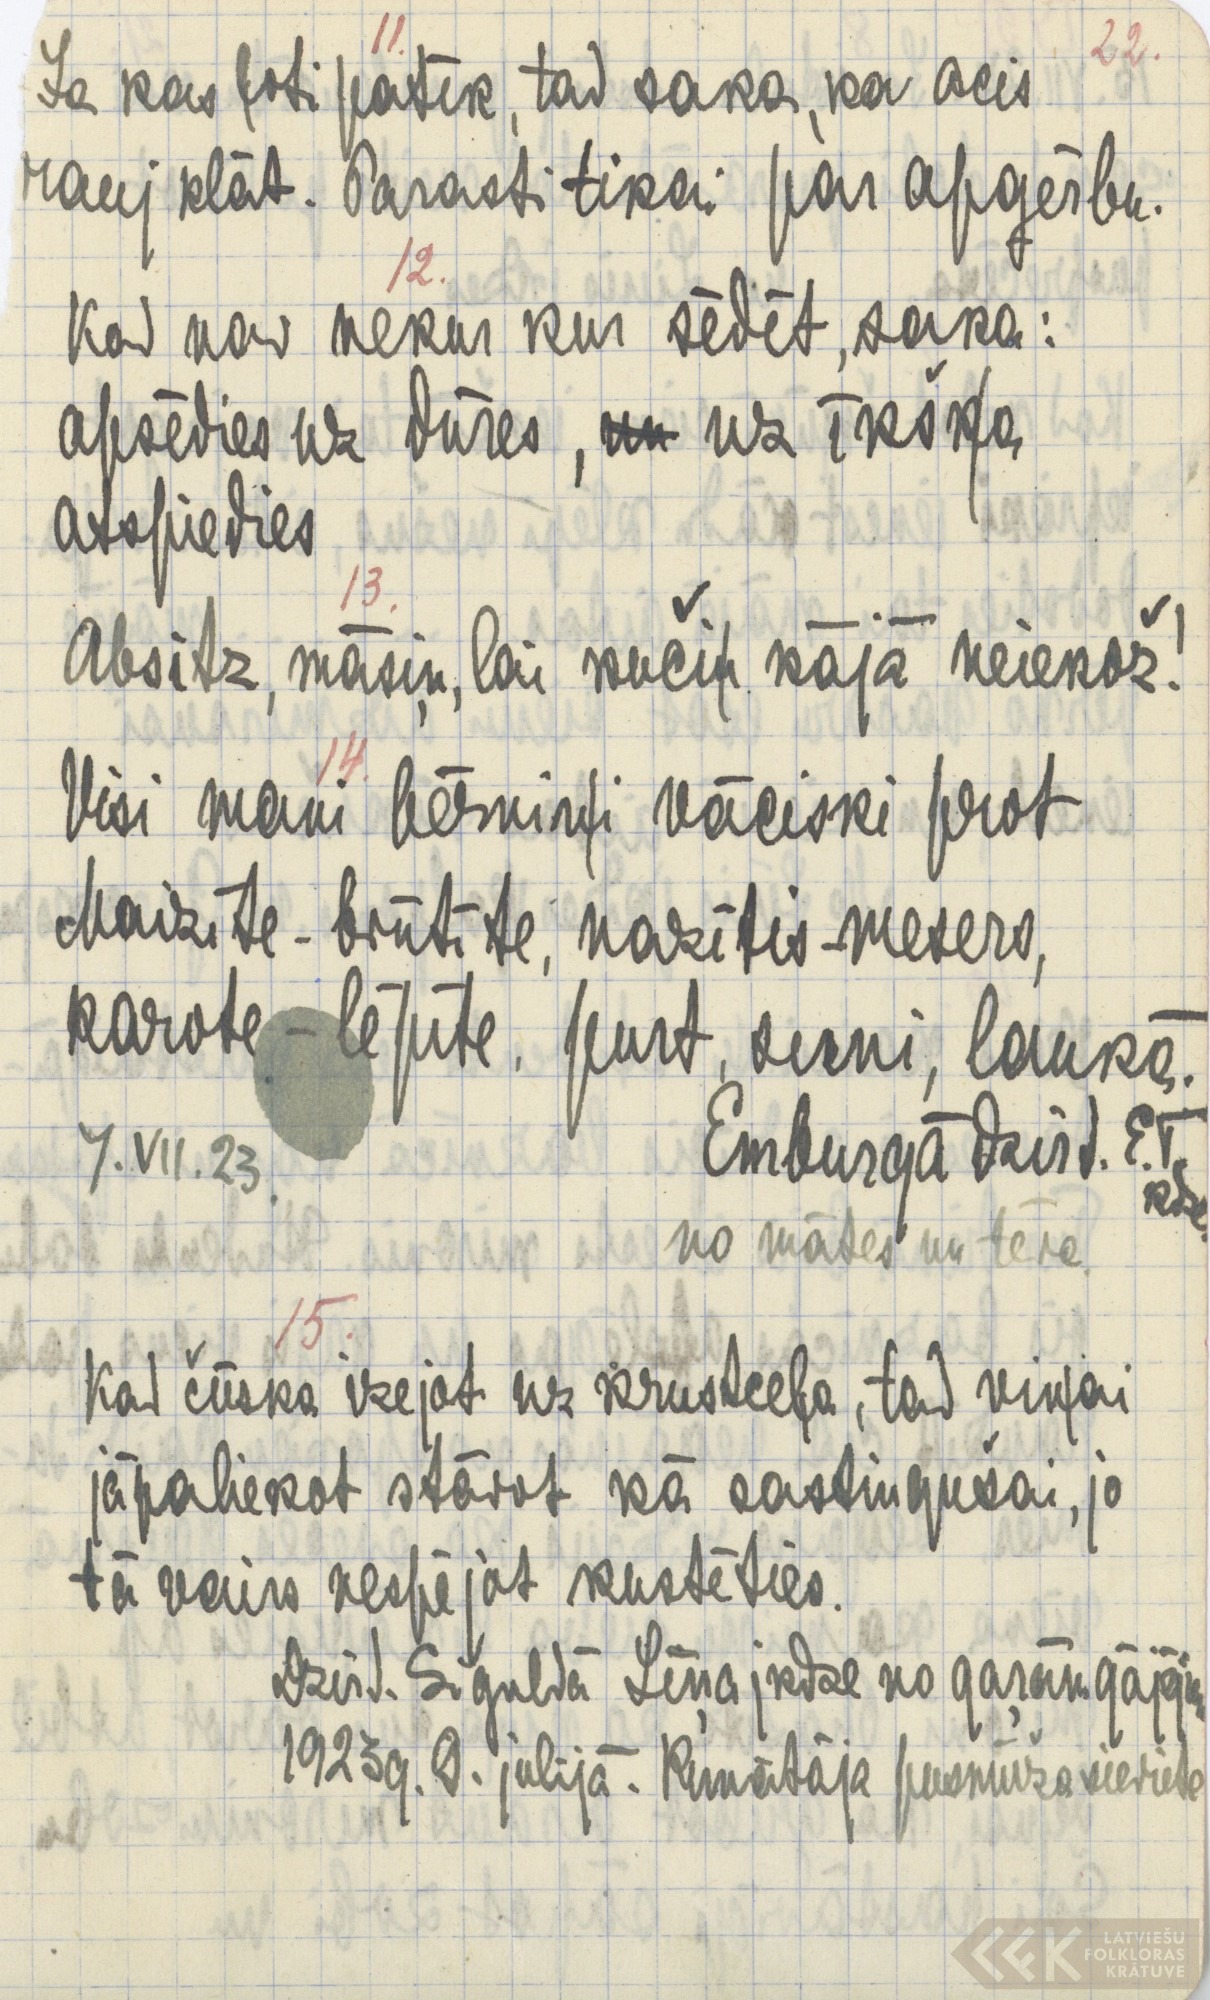 22.
11.
Ja kas ļoti patīk, tad saka, ka acis
rauj klāt. Parasti tikai par apģērbu.
12.
Kad nav nekur kur sēdēt, saka:
apsēdies uz dūres, uz īkšķa
atspiedies
13.
Absitz, māsiņ, lai kučiņ kājā neiekož!
14.
Visi mani bērniņi vāciski prot
Maizīte - brūtīte, nazītis - mesers,
karote - lēpīte, purt, suņi, laukā.
7. VII. 23.
Emburgā dzird. E.T.
kdze
no mātes un tēva.
15.
Kad čūska izejot uz krustceļa, tad viņai
jāpaliekot stāvot kā sastingušai, jo
tā vairs nespējot kustēties.
Dzird. Siguldā Liņa jkdze no garām gājējas
1923g. 9. jūlijā. Runātāja pusmūža sieviete
LATVIEŠU
FOLKLORAS
KRĀTUVE